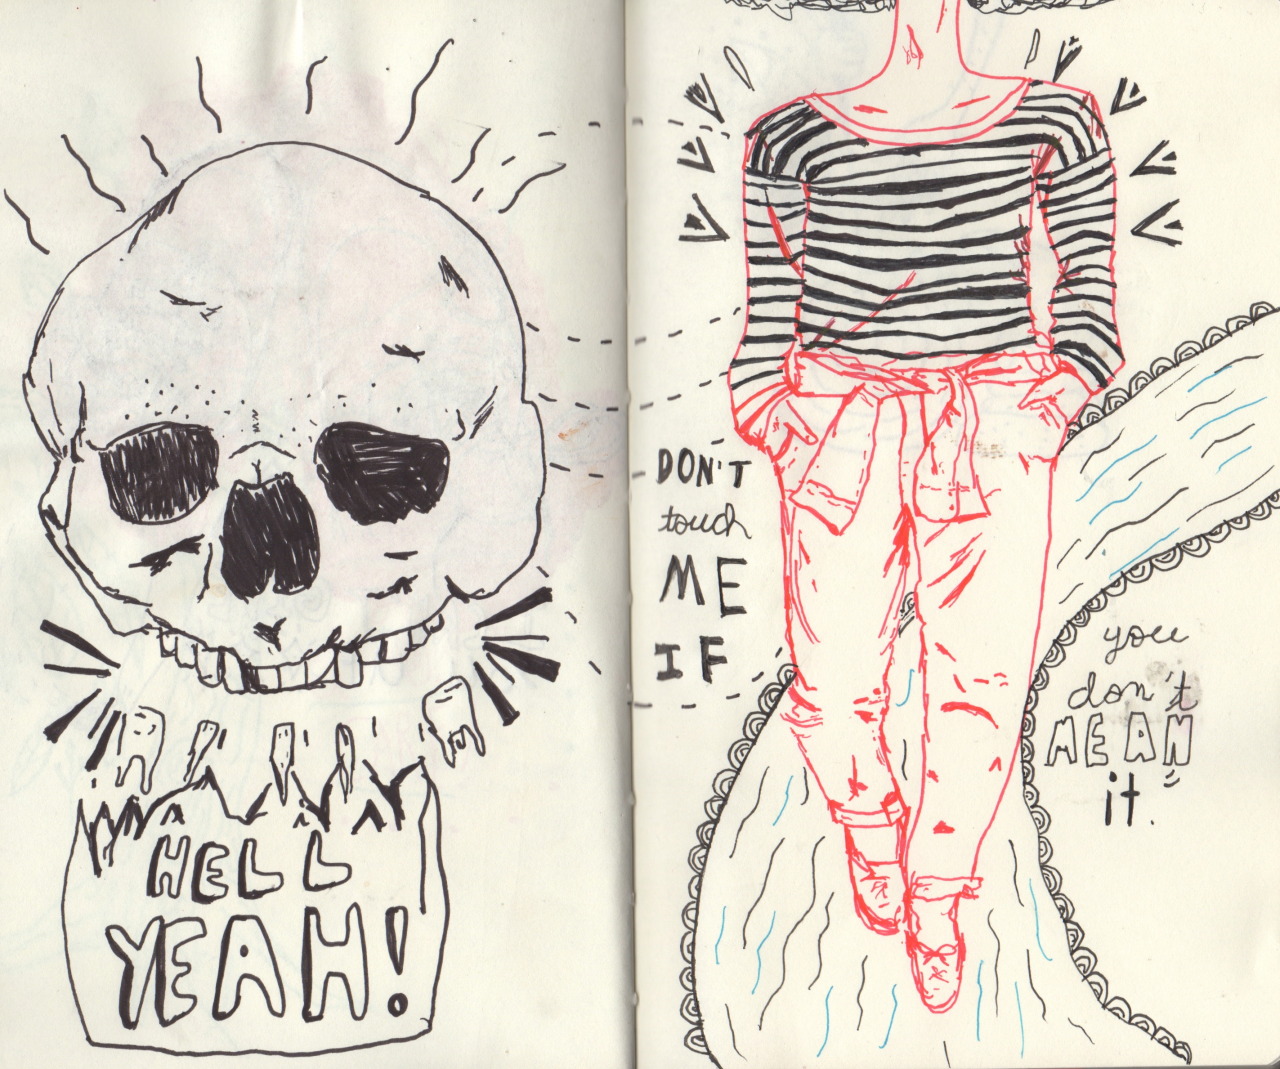 HELL
YEAH!
DON'T
touch
ME
IF
you
don't
MEAN
it.